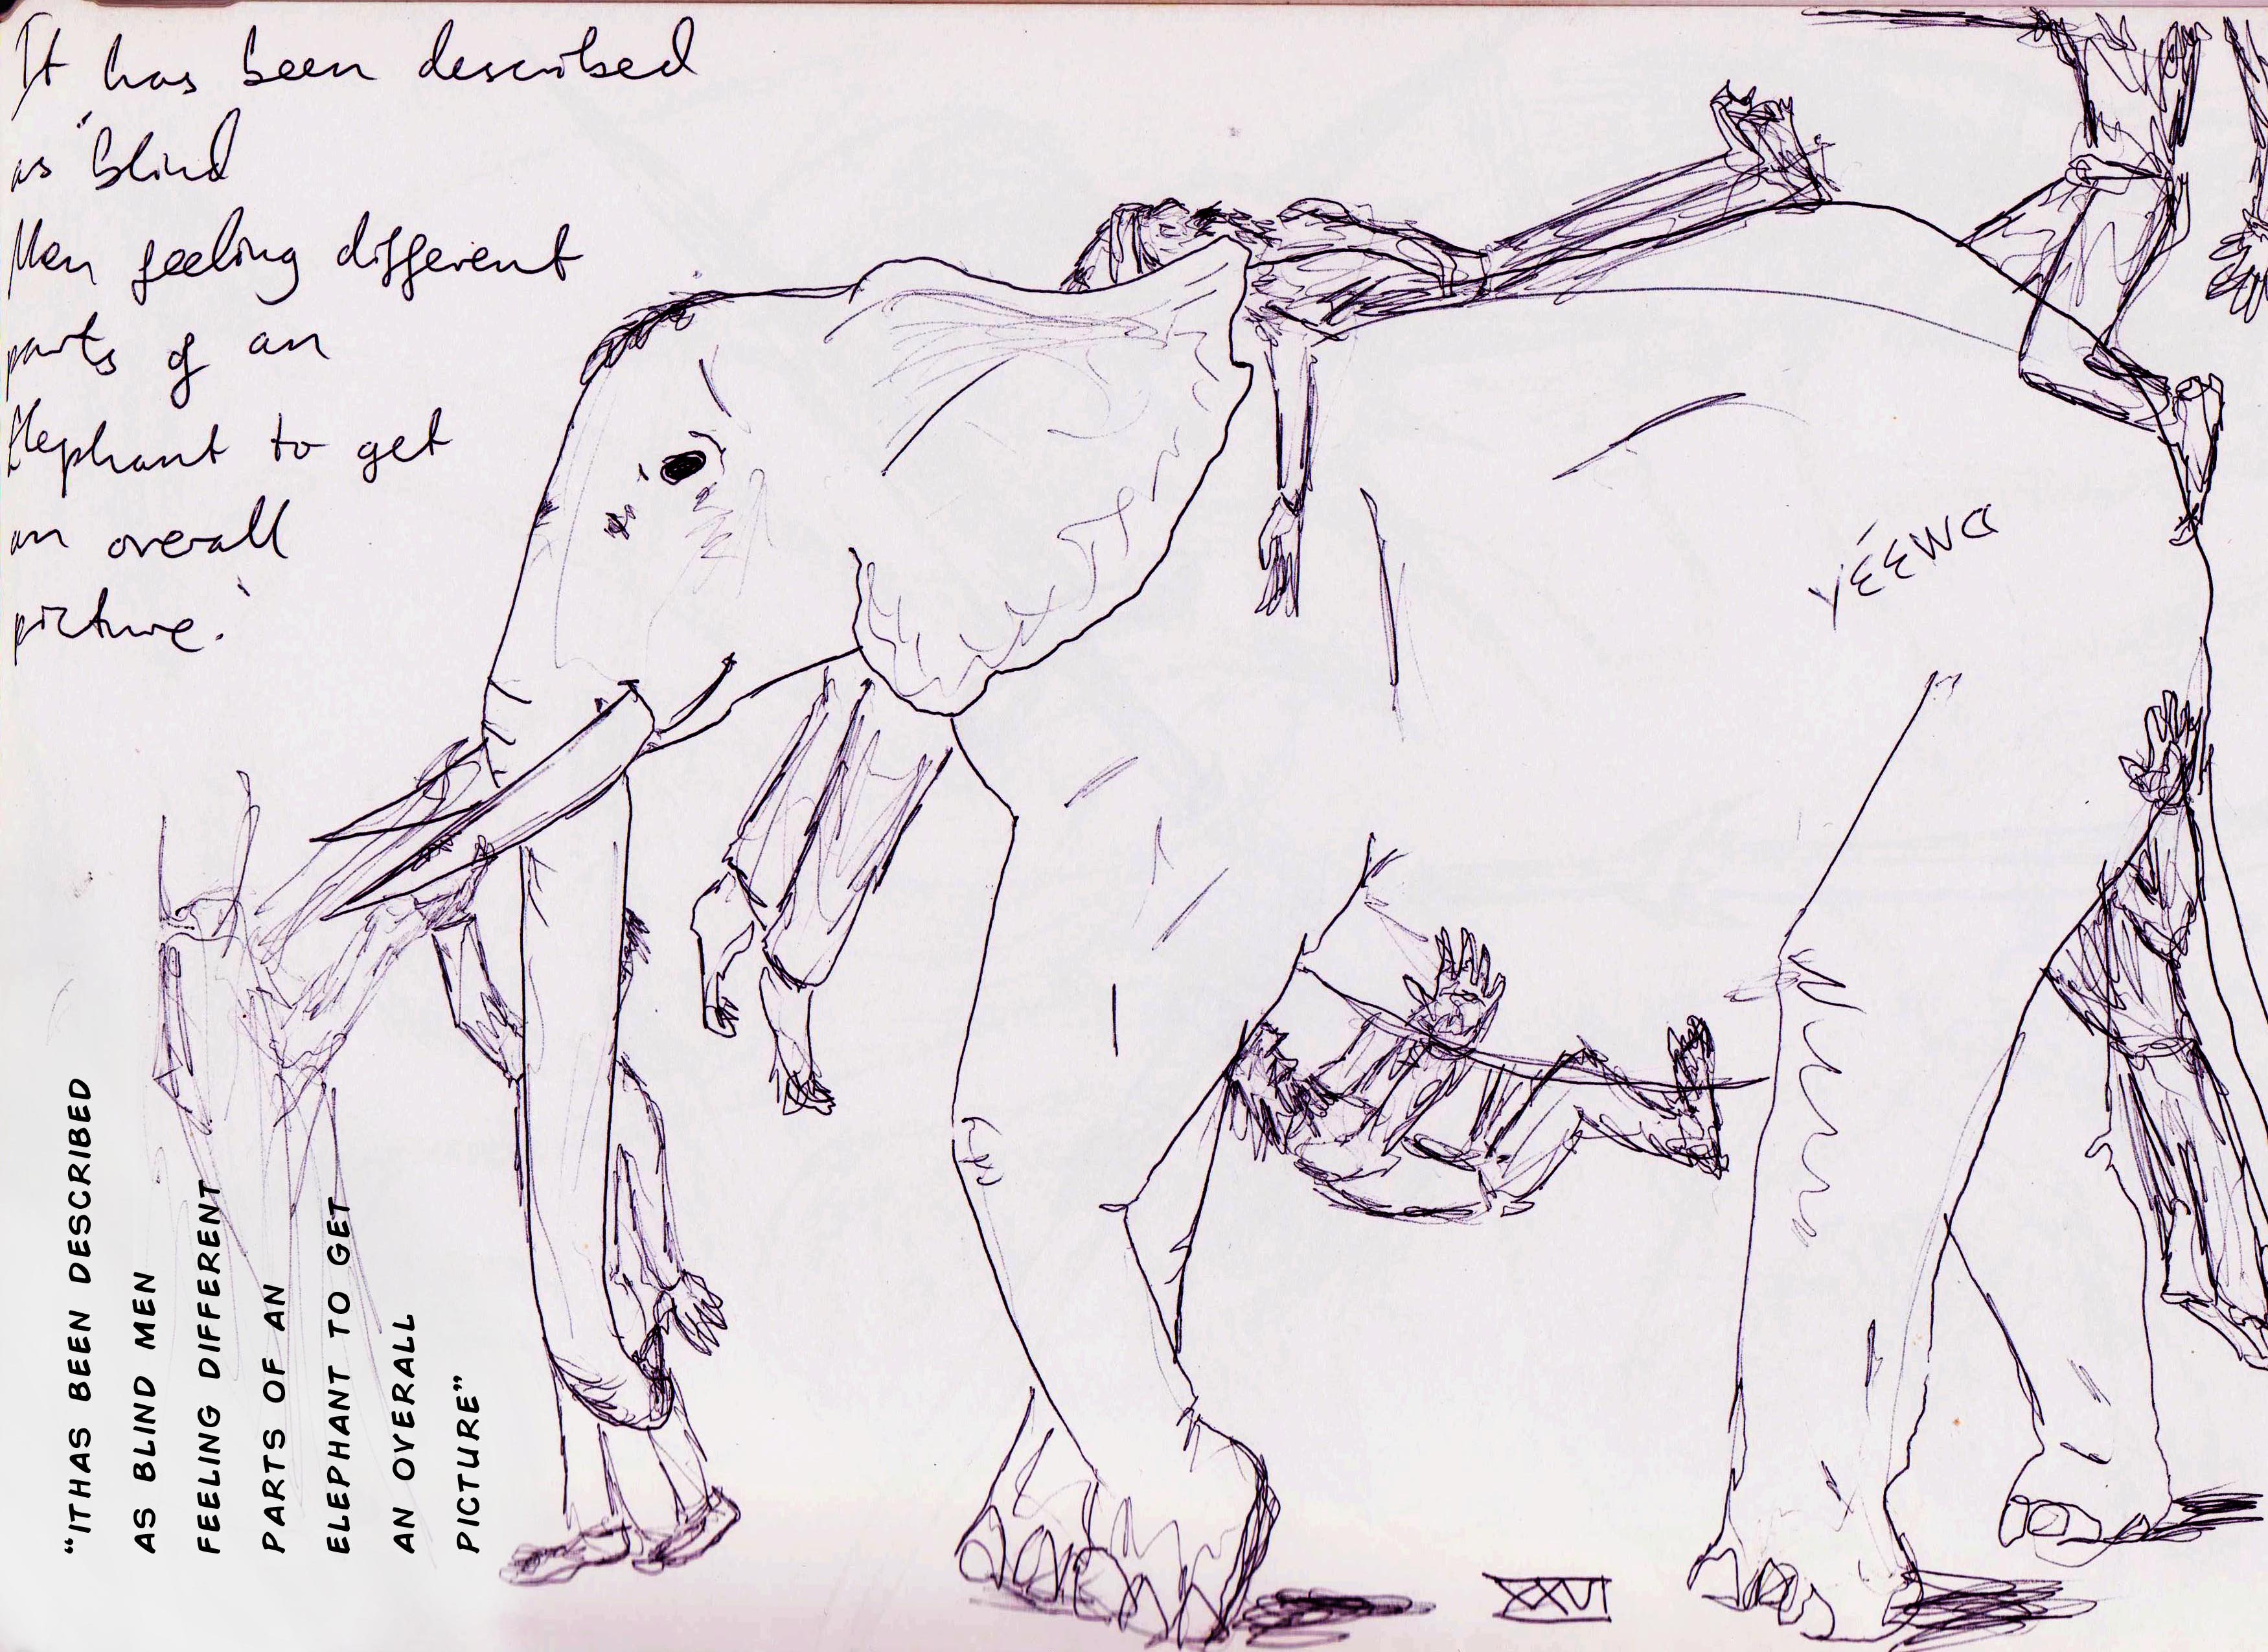 It has been described
as "blind
Men feeling different
parts of an
Elephant to get
an overall
picture."
"ITHAS BEEN DESCRIBED
AS BLIND MEN
FEELING DIFFERENT
PARTS OF AN
ELEPHANT TO GET
AN OVERALL
PICTURE"
XXVI